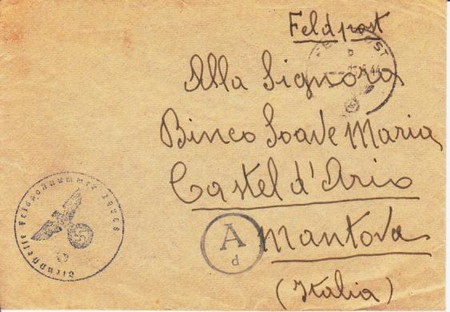 Feldpost
Alla Signora
Binco Soave Maria
Castel d'Ario
Mantova
(Italia)
Dienststelle Feldpostnummer
A
d
b